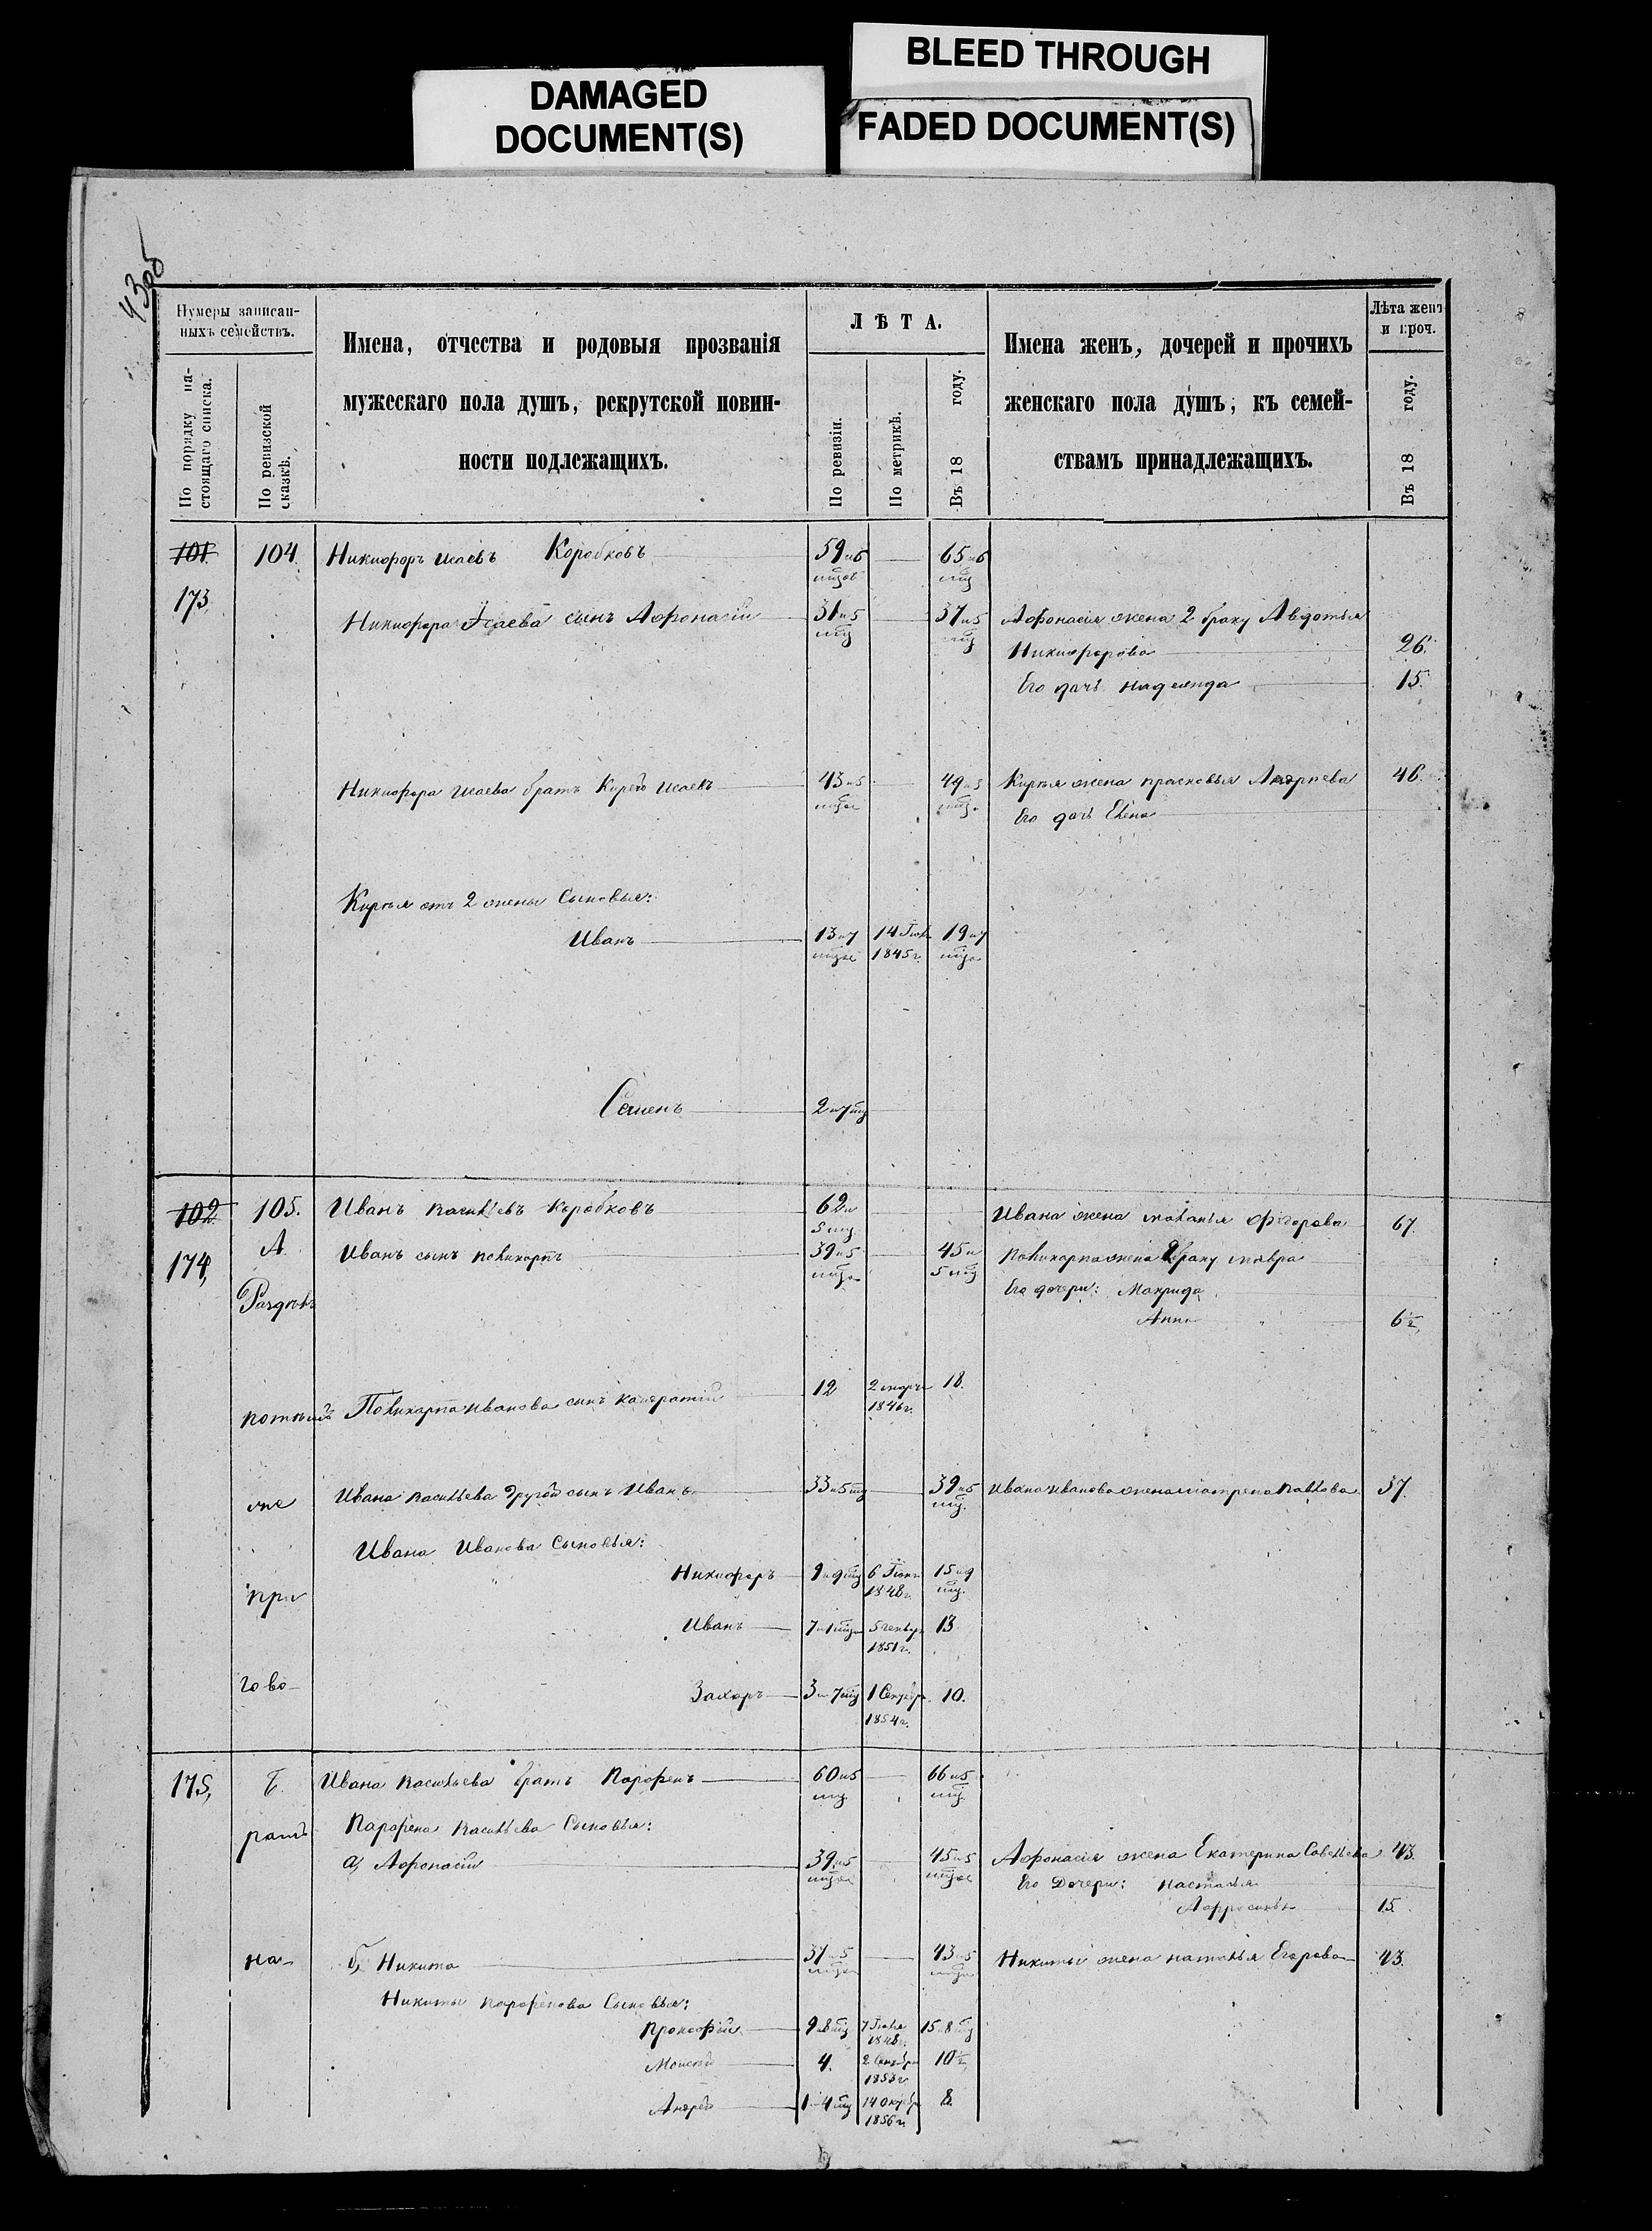 DAMAGED
DOCUMENT(S)
BLEED THROUGH
FADED DOCUMENT(S)
Нумеры записан-
ныхъ семействъ.
По порядку на-
стоящаго списка.
По ревизской
сказкѣ.
Имена, отчества и родовыя прозванія
мужескаго пола душъ, рекрутской повин-
ности подлежащихъ.
ЛѢТА.
По ревизіи.
По метрикѣ.
Въ 18 году.
Имена женъ, дочерей и прочихъ
женскаго пола душъ, къ семей-
ствамъ принадлежащихъ.
Лѣта женъ
и проч.
Въ 18 году.
101. 104. Никифоръ Исаевъ Коробковъ 59 и 6 65 и 6
173,
Никифора Исаева сынъ Афонасій 31 и 5 37 и 5 Афонасія жена 2 браку Авдотья
Никифорова 26.
Его дочь Надежда 15.
Никифора Исаева братъ Кирѣй Исаевъ 43 и 5 49 и 5 Кирѣя жена Прасковья Андреева 46.
Его дочь Елена
Кирѣя отъ 2 жены Сыновья:
Иванъ 13 и 7 14 1845 г. 19 и 7
Семенъ 2 и 7
102 105. Иванъ Васильевъ Коробковъ 62 и 5 Ивана жена Маланья Федорова 67.
174, А. Иванъ сынъ Поликарпъ 39 и 5 45 и 5 Поликарпа жена 2 браку Мавра
Его дочери: Макрида
Анна 6½
Поликарпа Иванова сынъ 12 2 1846 г. 18.
же Ивана Васильева другой сынъ Иванъ 33 и 5 39 и 5 Ивана Иванова жена Матрена Павлова 37.
Ивана Иванова Сыновья:
при Никифоръ 9 и 9 6 1848 г. 15 и 9
Иванъ 7 и 1 5 1851 г. 13
гово- Захаръ 3 и 7 1 1854 г. 10.
175, Б. Ивана Васильева братъ Парфенъ 60 и 5 66 и 5
Парфена Васильева Сыновья:
а, Афонасій 39 и 5 45 и 5 Афонасія жена Екатерина Савельева 43.
Его Дочери: Настасья
Афросинья 15.
на- б, Никита 43 и 5 Никиты жена Наталья Егорова 43.
Никиты Парфенова Сыновья:
Прокофій 9 и 8 7 1848 г. 15 и 8
Моисей 4. 2 1853 г. 10½
Андрей 1 и 4 14 Октября 1856 г. 8.